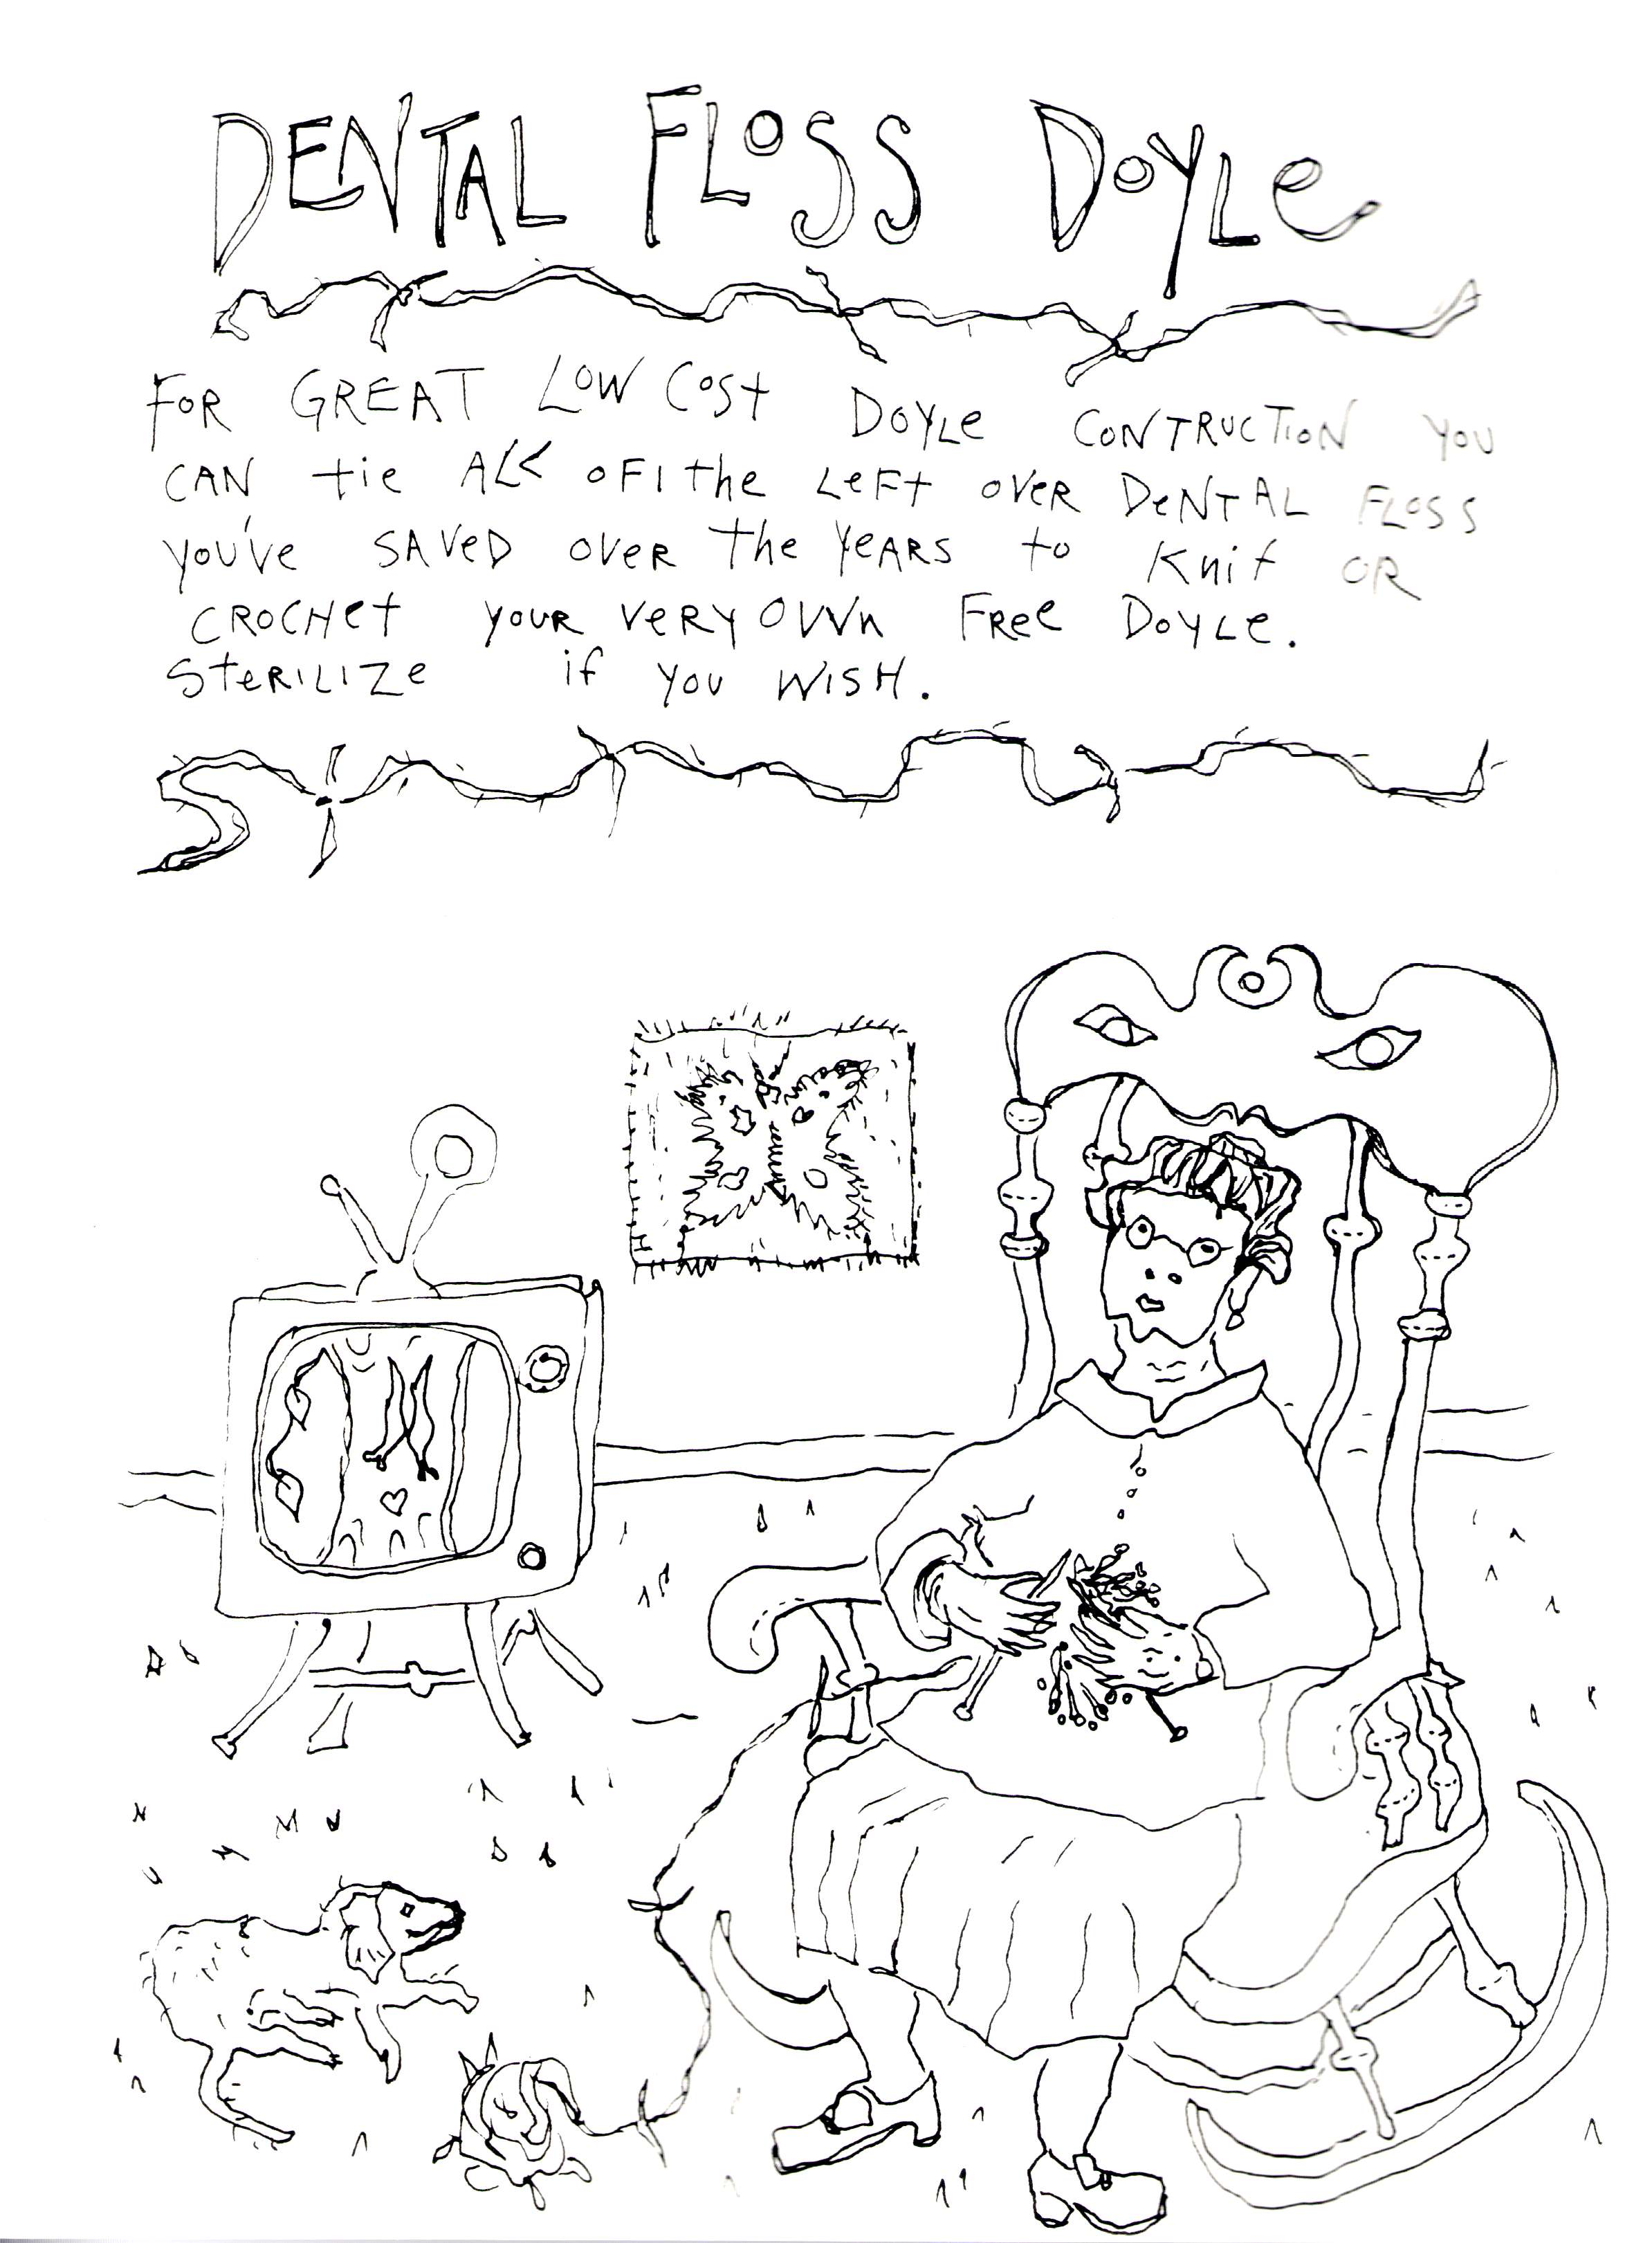 DENTAL FLOSS DOYLE
FOR GREAT LOW COST DOYLE CONTRUCTION YOU
CAN tie ALL OF the LEFT OVER DENTAL FLOSS
YOU'VE SAVED OVER the YEARS to Knit OR
CROCHET YOUR VERY OWN FREE DOYLE.
STERILIZE if YOU WISH.